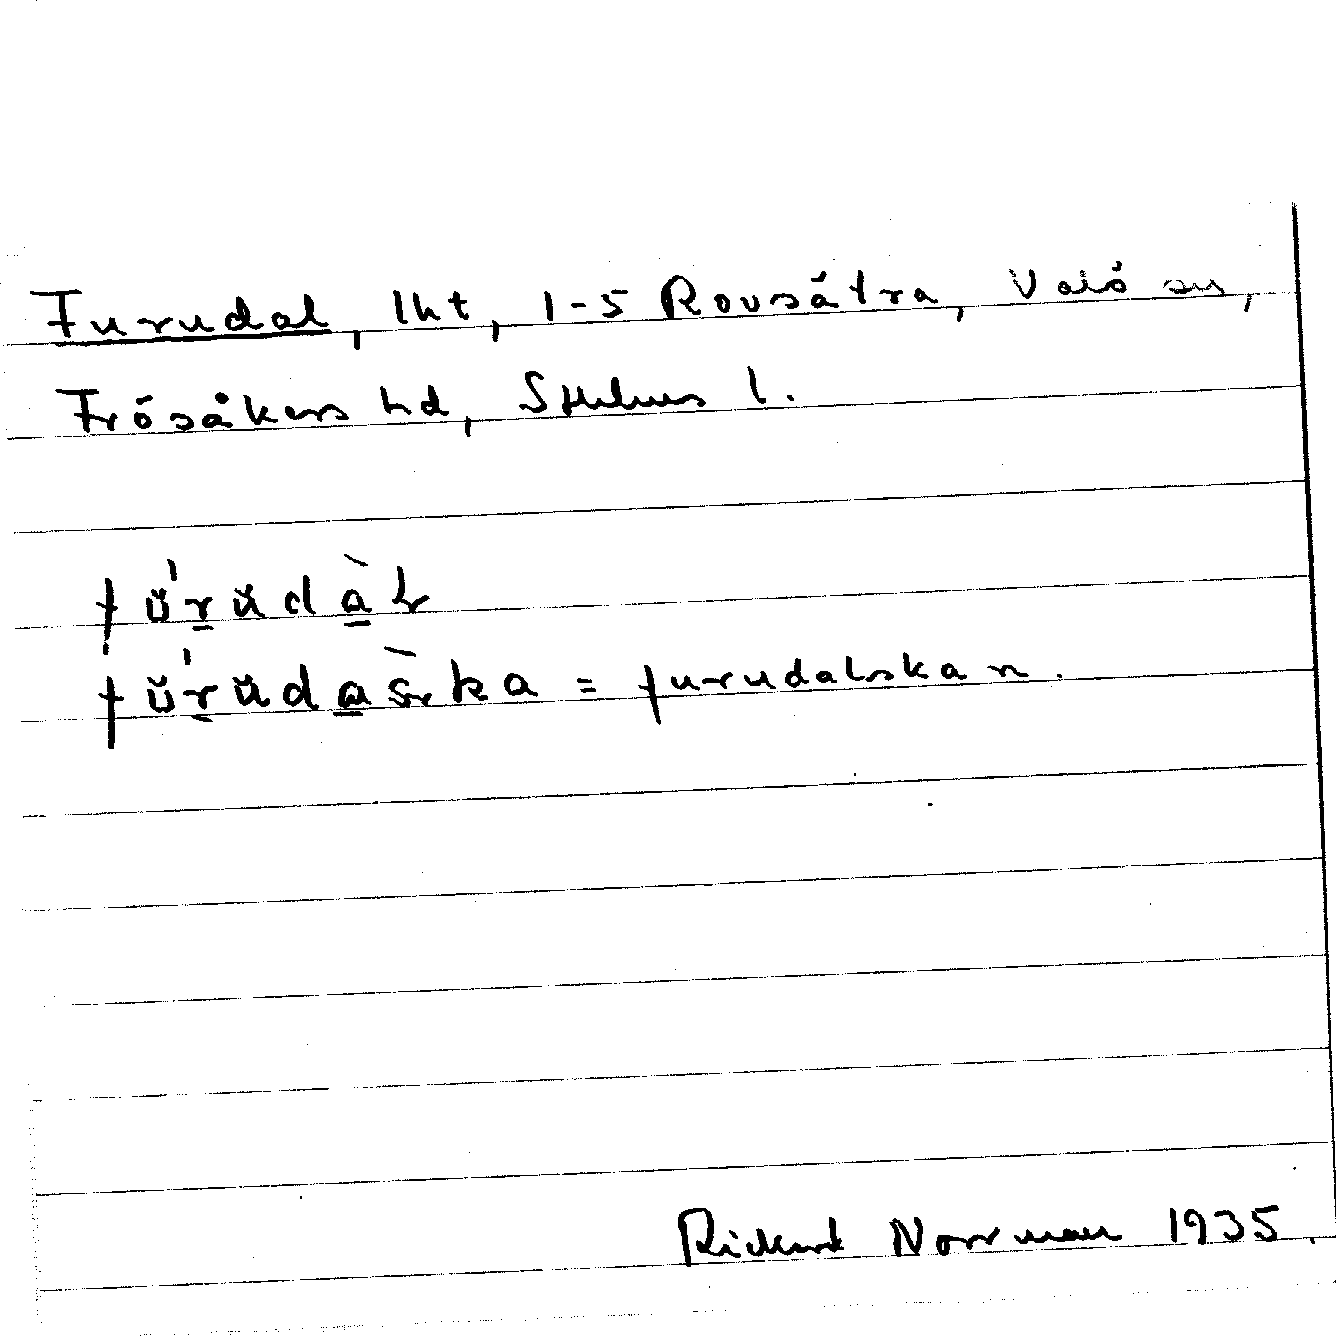 Furudal, lht, 1-5 Rovsätra, Valö sn,
Frösåkers hd, Sthlms l.
fŭ́rŭdàł
fŭ́rŭdàska = furudalskan.
Rickard Norrman 1935.